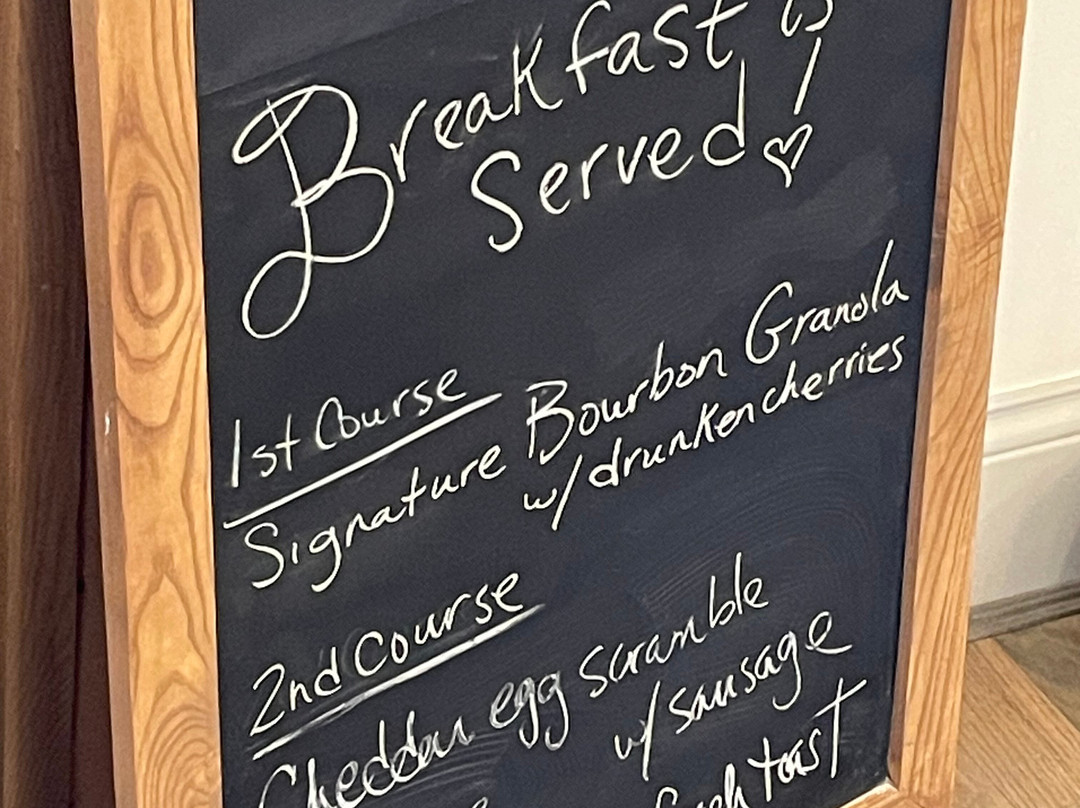 Breakfast is
Served!
1st Course
Signature Bourbon Granola
w/drunken cherries
2nd Course
Cheddar egg scramble
w/ sausage
toast